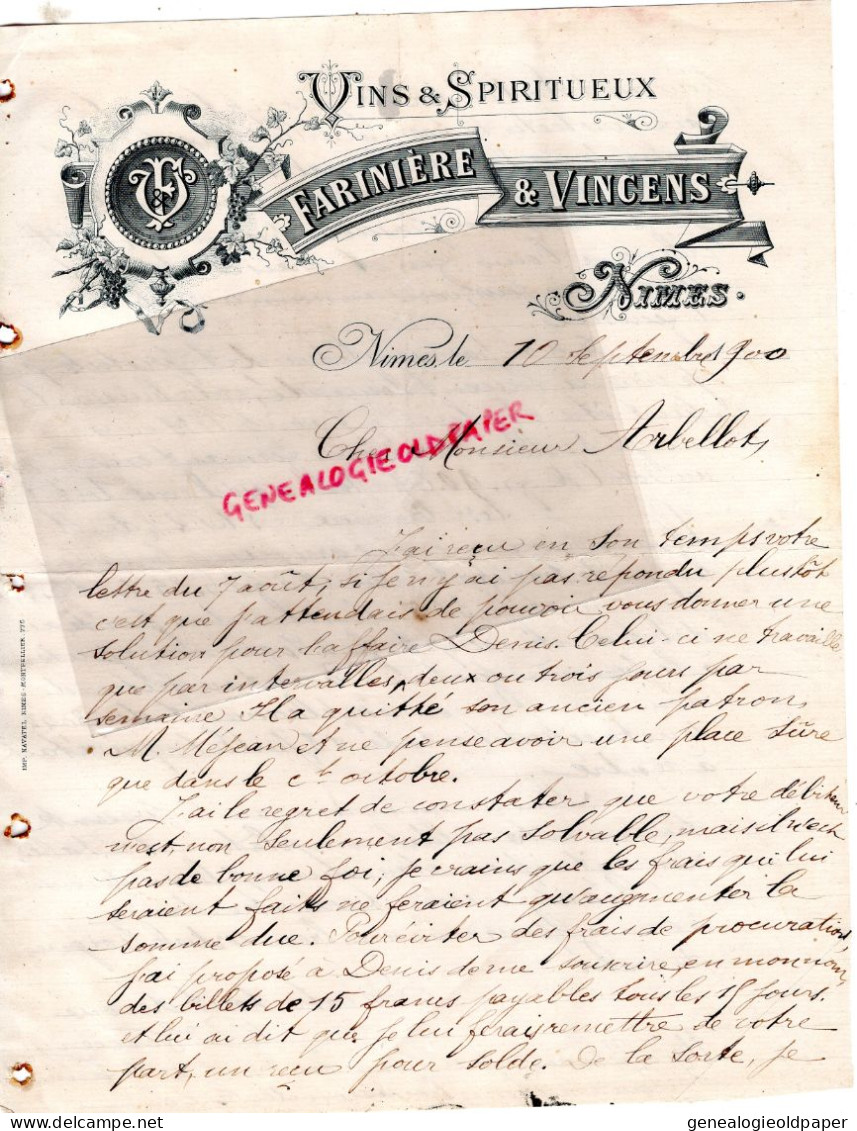 VINS & SPIRITUEUX
FARINIÈRE & VINCENS
NIMES.
Nimes, le 10 Septembre 1900
Cher Monsieur Arbellot,
GENEALOGIEOLDPAPER
J'ai reçu en son temps votre
lettre du 7 août; si je n'y ai pas répondu plustôt
c'est que j'attendais de pouvoir vous donner une
solution pour l'affaire Denis. Celui-ci ne travaille
que par intervalles, deux ou trois jours par
semaine. Il a quitté son ancien patron,
M. Méjean et ne pense avoir une place sûre
que dans le ct octobre.
J'ai le regret de constater que votre débiteur
n'est, non seulement pas solvable, mais il n'est
pas de bonne foi; je crains que les frais qui lui
seraient faits ne feraient qu'augmenter la
somme due. Pour éviter des frais de procuration,
j'ai proposé à Denis de me souscrire, en mon nom,
des billets de 15 francs payables tous les 15 jours.
et lui ai dit que je lui ferais remettre de votre
part, un reçu pour solde. De la sorte, je
IMP. NAVATEL NIMES-MONTPELLIER 775
genealogieoldpaper